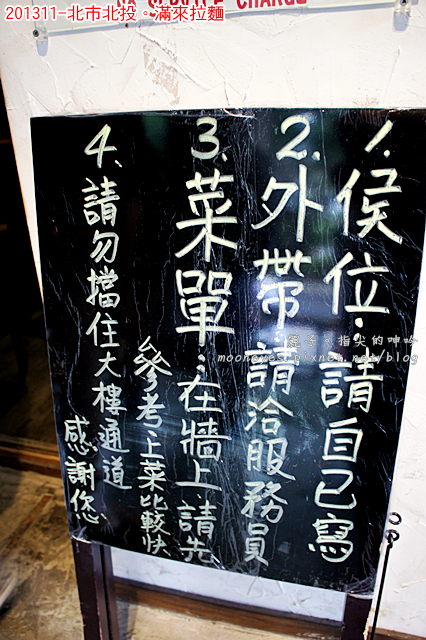 201311-北市北投。滿來拉麵
NO SERVICE CHARGE
1.侯位:請自己寫
2.外帶:請洽服務員
3.菜單:在牆上請先
參考上菜比較快
4、請勿擋住大樓通道
感謝您
指尖的呻吟
mooneyes.pixnet.net/blog